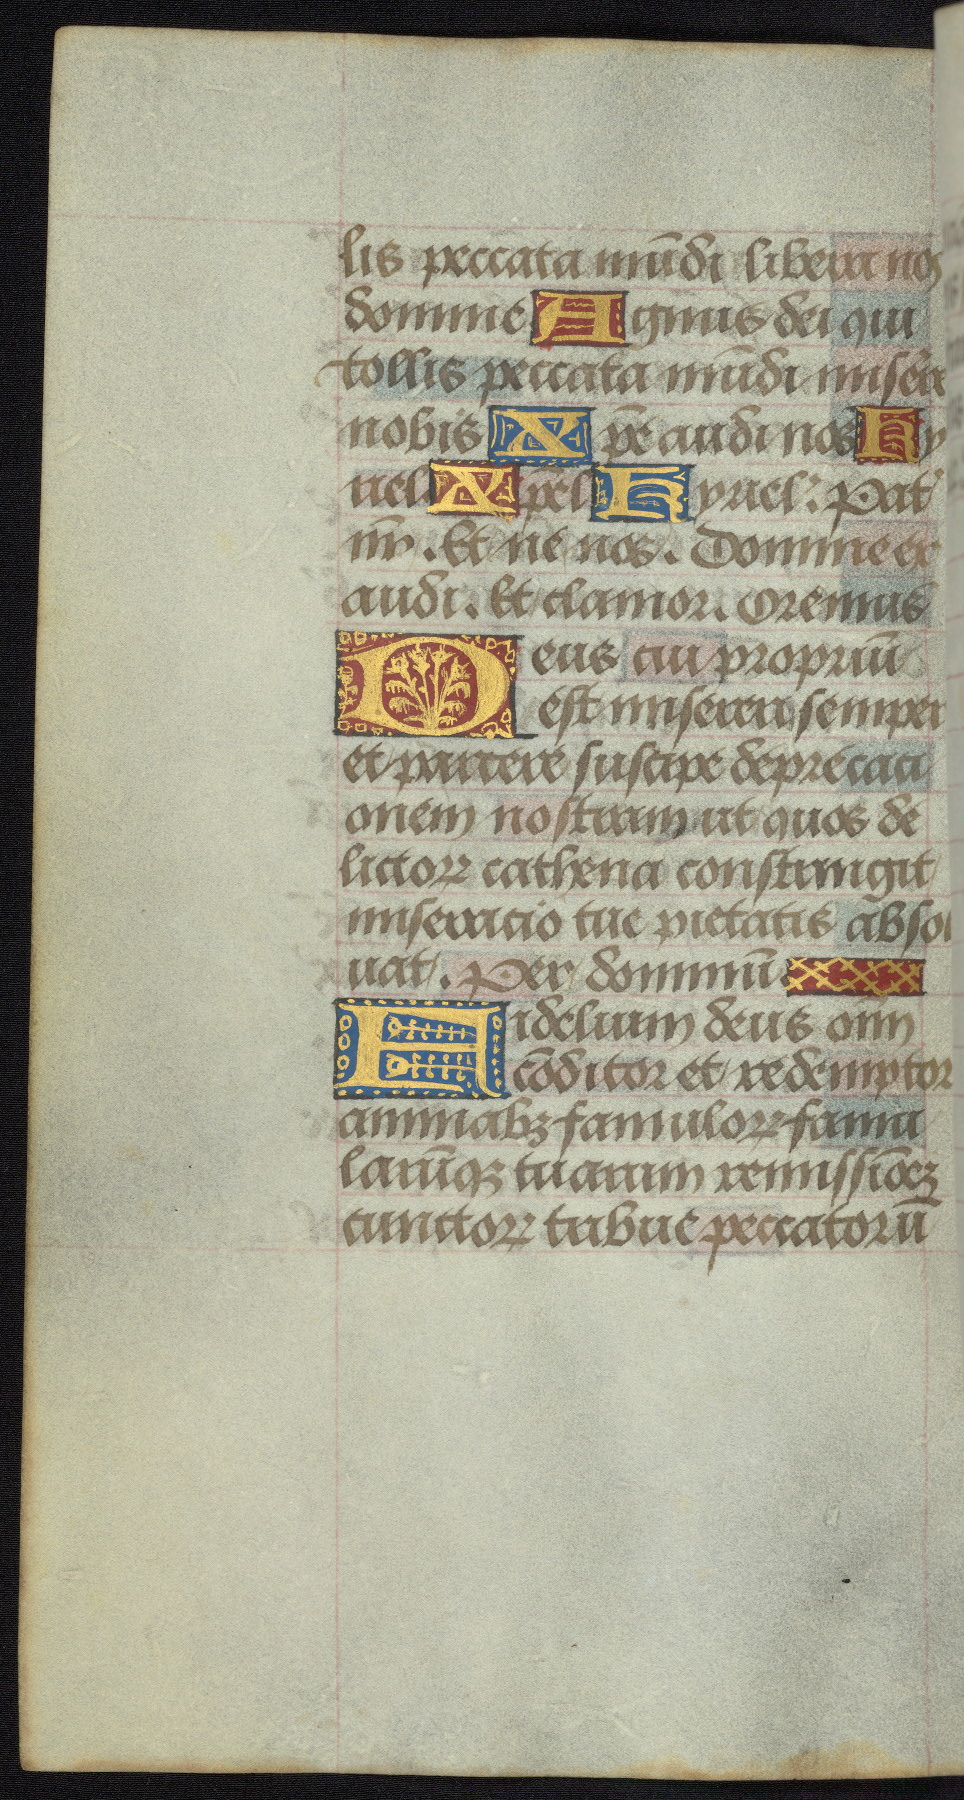 lis peccata mūdi libera nos
domine Agnus dei qui
tollis peccata mūdi misere
nobis Xp̄e audi nos Ky
riel Xp̄el Kyriel'. Pat'
nr̄. Et ne nos. Domine ex
audi. Et clamor. Oremus
Deus cui propriū
est misereri semper
et parcere suscipe depreicaci
onem nostram ut quos de
lictoꝝ cathena constringit
miseracio tue pietatis absol
uat. Per dominū
Fidelium deus om̄
cōditor et redemptor
animabꝫ famuloꝝ famu
larūqꝫ tuarum remissiōeꝫ
cunctoꝝ tribue peccatorū